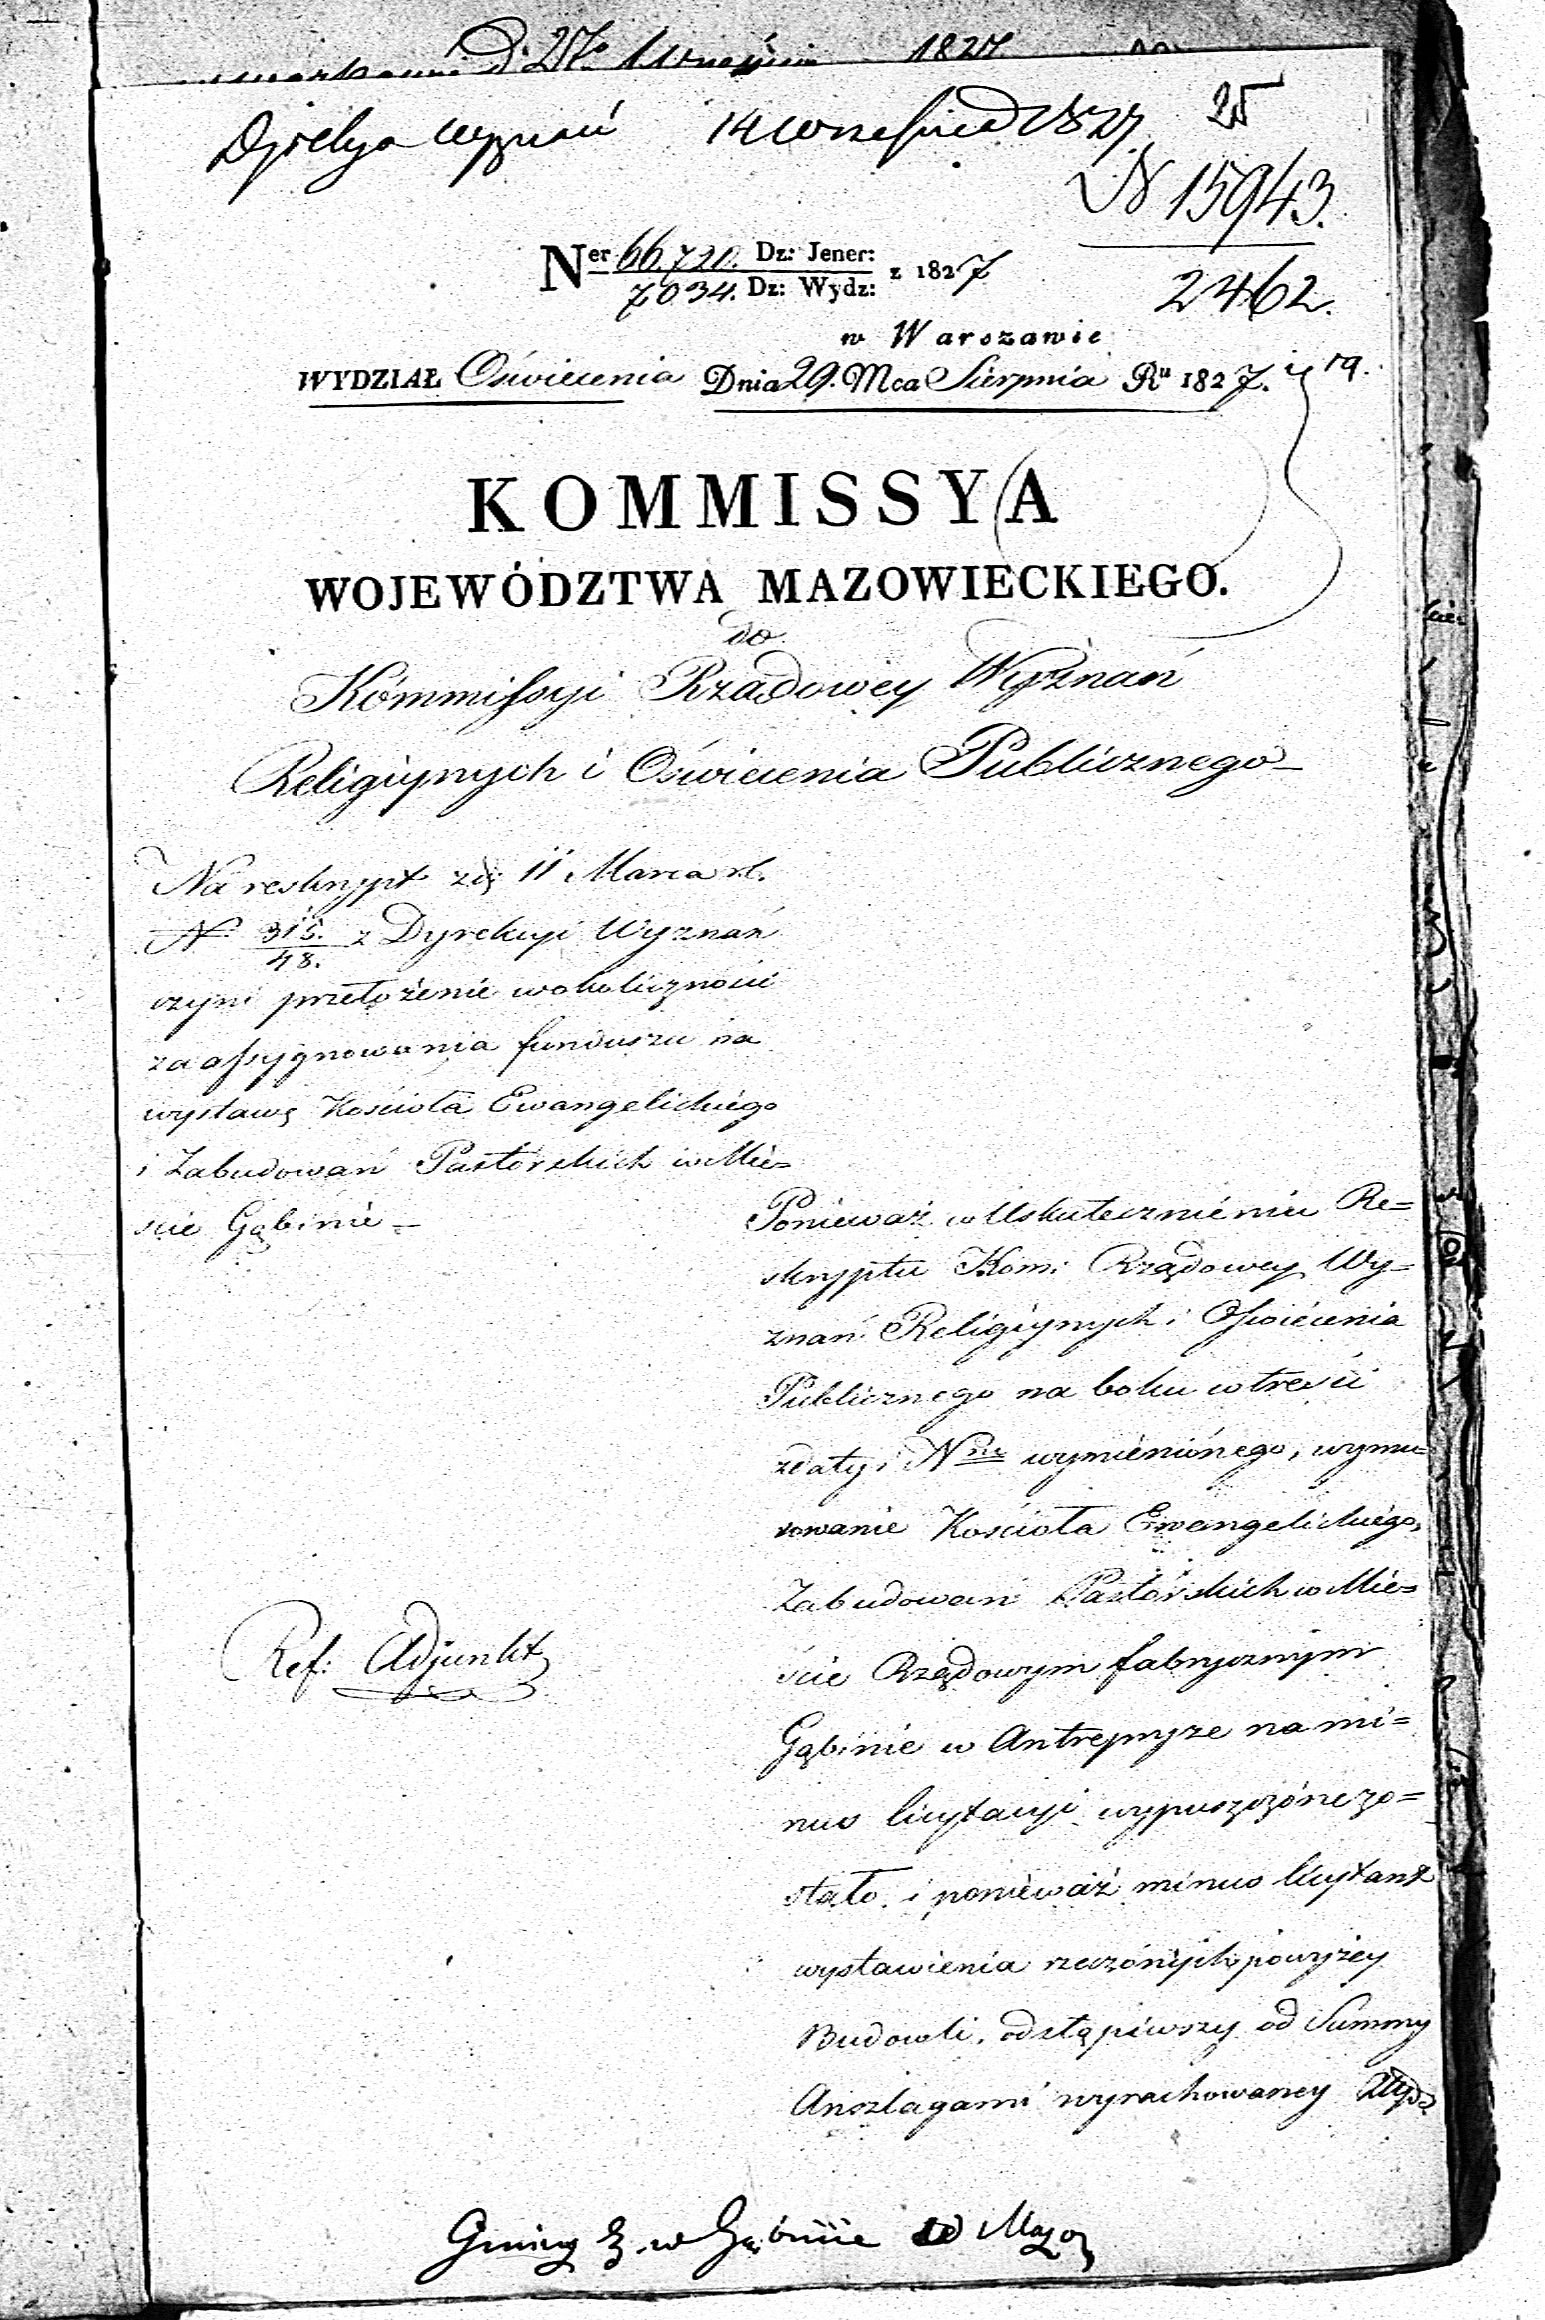 d. 27. Września 1827
Dyrekcya Wyznań 14 Września 1827. 25
N 15943.
2462.
Ner 66,720. Dz: Jener: z 1827
7034. Dz: Wydz:
w Warszawie
WYDZIAŁ Oświecenia Dnia 29. Mca Sierpnia Ru 1827.
KOMMISSYA
WOJEWÓDZTWA MAZOWIECKIEGO.
do
Kommissyi Rządowey Wyznań
Religiynych i Oświecenia Publicznego
Na reskrypt z d. 11 Marca r.b.
N 315./48. z Dyrekcyi Wyznań
czyni przełożenie w okoliczności
zaassygnowania funduszu na
wystawę Kościoła Ewangelickiego
i Zabudowań Pastorskich w Mie=
ście Gąbinie =
Ponieważ w Uskutecznieniu Re=
skryptu Kom: Rządowey Wy=
znań Religiynych i Oświecenia
Publicznego na boku w treści
z daty i Nru wymienionego, wymu=
rowanie Kościoła Ewangelickiego,
Zabudowań Pastorskich w Mie=
ście Rządowym fabrycznym
Gąbinie w Antrepryze na mi=
nus licytacyi wypuszczone zo=
stało, i ponieważ minus licytant
wystawienia rzeczonych powyżey
Budowli, odstąpiwszy od Summy
Anszlagami wyrachowaney
Ref: Adjunkt
Gminy E. w Gąbinie